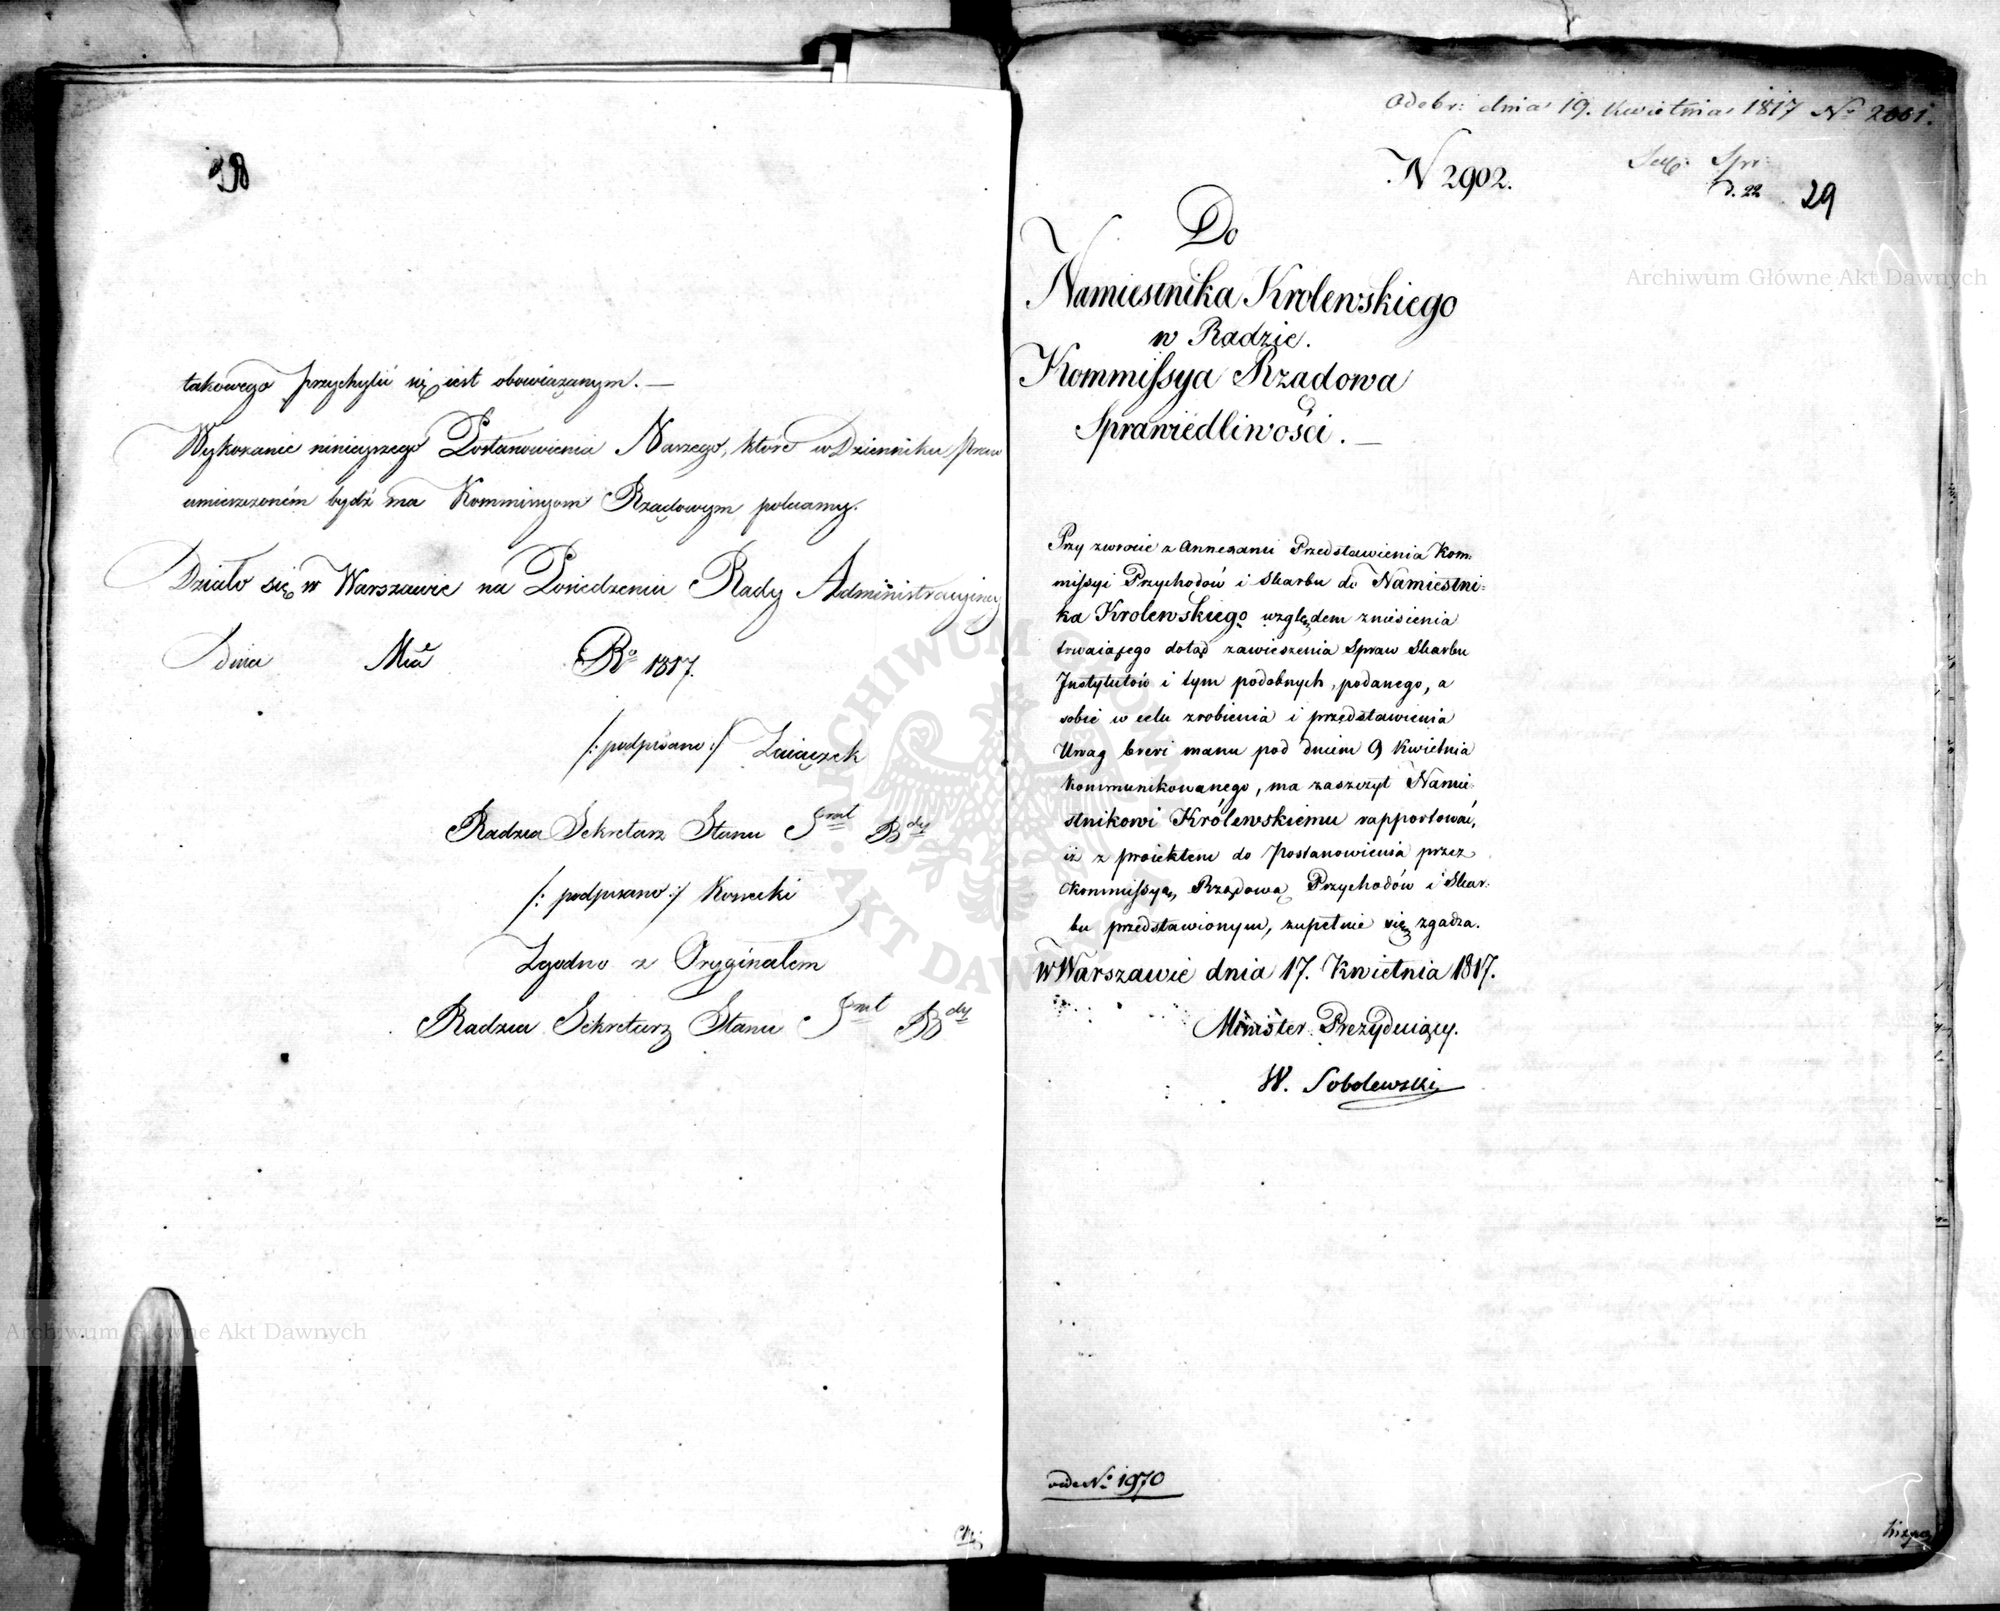 28
takowego przychylić się iest obowiązanym. —
Wykonanie ninieyszego Postanowienia Naszego, które w Dzienniku Praw
umieszczoném bydź ma Kommissyom Rządowym polecamy.
Działo się w Warszawie na Posiedzeniu Rady Administracyiney
dnia Mca Ro 1817.
/: podpisano :/ Zaiączek
Radzca Sekretarz Stanu Jnrał Bdy
/: podpisano :/ Kossecki
Zgodno z Oryginałem
Radzca Sekretarz Stanu Jnrał Bdy
Odebr: dnia 19. Kwietnia 1817 No 2001.
N 2902.
29
Do
Namiestnika Krolewskiego
w Radzie.
Kommissya Rządowa
Sprawiedliwości. —
Przy zwrocie z Annexami Przedstawienia Kom-
missyi Przychodów i Skarbu do Namiestni-
ka Krolewskiego względem zniesienia
trwaiącego dotąd zawieszenia Spraw Skarbu
Instytutów i tym podobnych, podanego, a
sobie w celu zrobienia i przedstawienia
Uwag brevi manu pod dniem 9 Kwietnia
kommunikowanego, ma zaszczyt Namie-
stnikowi Królewskiemu rapportować,
iż z proiektem do Postanowienia przez
Kommissyą Rządową Przychodów i Skar-
bu przedstawionym, zupełnie się zgadza.
w Warszawie dnia 17. Kwietnia 1817.
Minister Prezyduiący.
W. Sobolewski
vide No 1970
Archiwum Główne Akt Dawnych
Archiwum Główne Akt Dawnych
ARCHIWUM GŁÓWNE AKT DAWNYCH